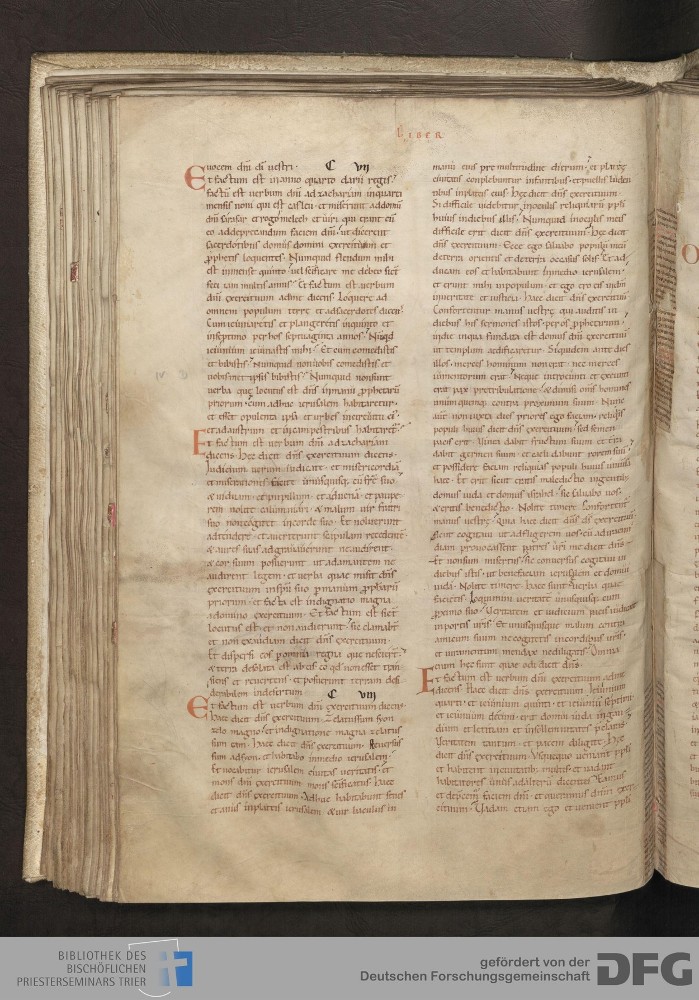 LIBER
uocem dñi dī uestri · C VII
Et factum est in anno quarto darii regis ·
factū est uerbum dñi ad zachariam in quarti
mensis noni qui est casleu · et miserunt ad domū
dñi sarasar et rogomelech et uiri qui erant cū
eo ad deprecandum faciem dñi · ut dicerent
sacerdotibus domus domini exercituum et
prophetis loquentes · Numquid flendum mihi
est in mense quinto · uel scificare me debeo sicut
feci iam multis annis · Et factum est uerbum
dñi exercituum ad me dicens · Loquere ad
omnem populum terre et ad sacerdotes dicens ·
Cum ieiunaretis et plangeretis in quinto et
in septimo per hos septuaginta annos · Nūqd
ieiunium ieiunastis mihi · Et cum comedistis
et bibistis · Numquid non uobis comedistis et
uobismet ipsis bibistis · Numquid non sunt
uerba que locutus est dñs in manu prophetarū
priorum · cum adhuc ierusalem habitaretur ·
et esset opulenta ipsa et urbes in circuitu ei
et ad austrum et in campestribus habitaret ·
Et factum est uerbum dñi ad zachariam
dicens · Hec dicit dñs exercituum dicens ·
Iudicium uerum iudicate · et misericordiā
et miserationes facite unusquisq cū fratre suo
& uiduam · et pupillum · et aduenā · et paupe
rem nolite calumniari · & malum uir fratri
suo non cogitet in corde suo · Et noluerunt
adtendere · et auerterunt scapulam recedentē
& aures suas adgrauauerunt ne audirent ·
& cor suum posuerunt ut adamantem ne
audirent legem · et uerba que misit dñs
exercituum in spū suo p manum prophetarū
priorum · et facta est indignatio magna
a domino exercituum · Et factum est sicut
locutus est · et non audierunt · sic clamabunt
et non exaudiam dicit dñs exercituum ·
Et dispersi eos p omnia regna que nesciunt ·
& terra desolata est ab eis eo qd non esset tran
siens et reuertens · et posuerunt terram desi
derabilem in desertum · C VIII
Et factum est uerbum dñi exercituum dicens ·
Haec dicit dñs exercituum · Zelatus sum sion
zelo magno · et indignatione magna zelatus
sum eam · Haec dicit dñs exercituum · Reuersus
sum ad sion · et habitabo in medio ierusalem ·
Et uocabitur ierusalem ciuitas ueritatis · et
mons dñi exercituum mons scificatus · Haec
dicit dñs exercituum · Adhuc habitabunt senes
et anus in plateis ierusalem · & uir baculus in
manu eius pre multitudine dierum · et plateę
ciuitatis complebuntur infantibus · et puellis luden
tibus in plateis eius · Hec dicit dñs exercituum ·
Si difficile uidebitur in oculis reliquiarū ppli
huius in diebus illis · Numquid in oculis meis
difficile erit dicit dñs exercituum · Hęc dicit
dñs exercituum · Ecce ego saluabo populū meū
de terra orientis et de terra occasus solis · Et ad
ducam eos et habitabunt in medio ierusalem ·
et erunt mihi in populum · et ego ero eis in dm
in ueritate et iusticia · Haec dicit dñs exercituū ·
Confortentur manus uestrę qui auditis in
diebus his sermones istos per os prophetarum ·
in die in qua fundata est domus dñi exercituū
ut templum aedificaretur · Siquidem ante dies
illos · merces hominum non erat · nec merces
iumentorum erat · Neque introeunti et exeunti
erat pax pre tribulatione · & dimisi oms homines
unumquemq contra proximum suum · Nunc
aut non iuxta dies priores ego faciam reliquiis
populi huius dicit dñs exercituum · sed semen
pacis erit · Uinea dabit fructum suum et terra
dabit germen suum · et caeli dabunt rorem suū ·
et possidere faciam reliquias populi huius uniuersa
haec · Et erit sicut eratis maledictio in gentibus
domus iuda et domus israhel · sic saluabo uos ·
& eritis benedictio · Nolite timere · Confortent
manus uestrę · Quia haec dicit dñs dī exercituū ·
Sicut cogitaui ut adfligerem uos · cū ad iracun
diam prouocassent patres uri me dicit dñs ·
Et non sum misertus · sic conuersus cogitaui in
diebus istis · ut benefaciam ierusalem et domui
iuda · Nolite timere · Haec sunt uerba quae
facietis · Loquimini ueritatē unusquisq cum
proximo suo · Ueritatem et iudicium pacis iudicate
in portis uris · Et unusquisque malum contra
amicum suum ne cogitetis in cordibus uris ·
et iuramentum mendax ne diligatis · Omnia
enim hęc sunt quae odi dicit dñs ·
Et factum est uerbum dñi exercituum ad me
dicens · Haec dicit dñs exercituum · Ieiunium
quarti · et ieiunium quinti · et ieiuniū septimi ·
et ieiunium decimi · erit domui iuda in gau
dium et letitiam et in sollemnitates pclaras ·
Ueritatem tantum · et pacem diligite · Hęc
dicit dñs exercituum · Usquequo ueniant ppli
et habitent in ciuitatib multis · et uadant
habitatores unus ad alterū dicentes · Eamus
et deprecem faciem dñi · et queramus dñm exer
cituum · Uadam etiam ego et uenient ppli
BIBLIOTHEK DES
BISCHÖFLICHEN
PRIESTERSEMINARS TRIER
gefördert von der
Deutschen Forschungsgemeinschaft
DFG